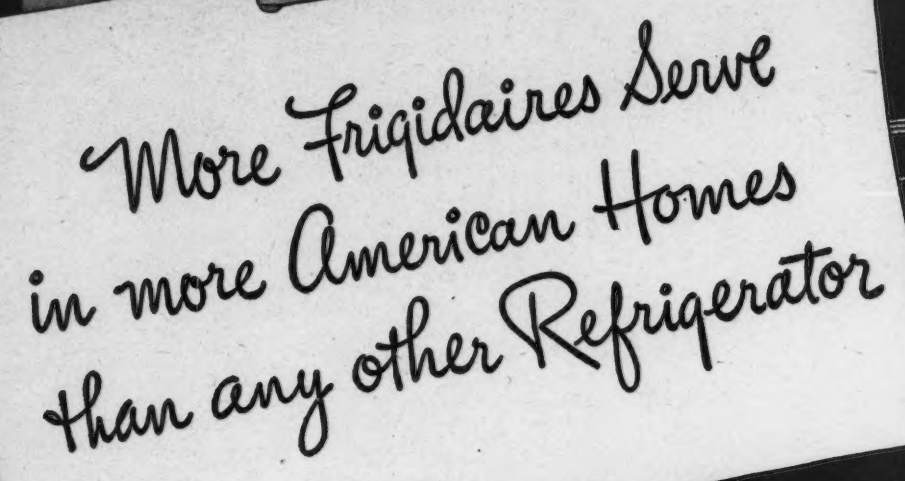 More Frigidaires Serve
in more American Homes
than any other Refrigerator